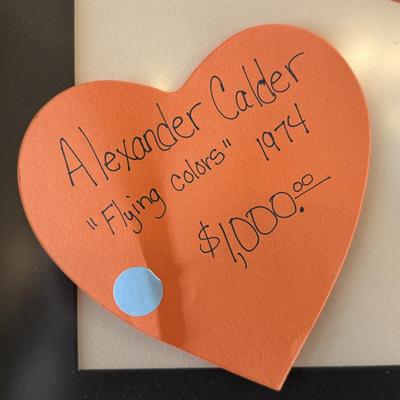 Alexander Calder
"Flying Colors" 1974
$1,000.00